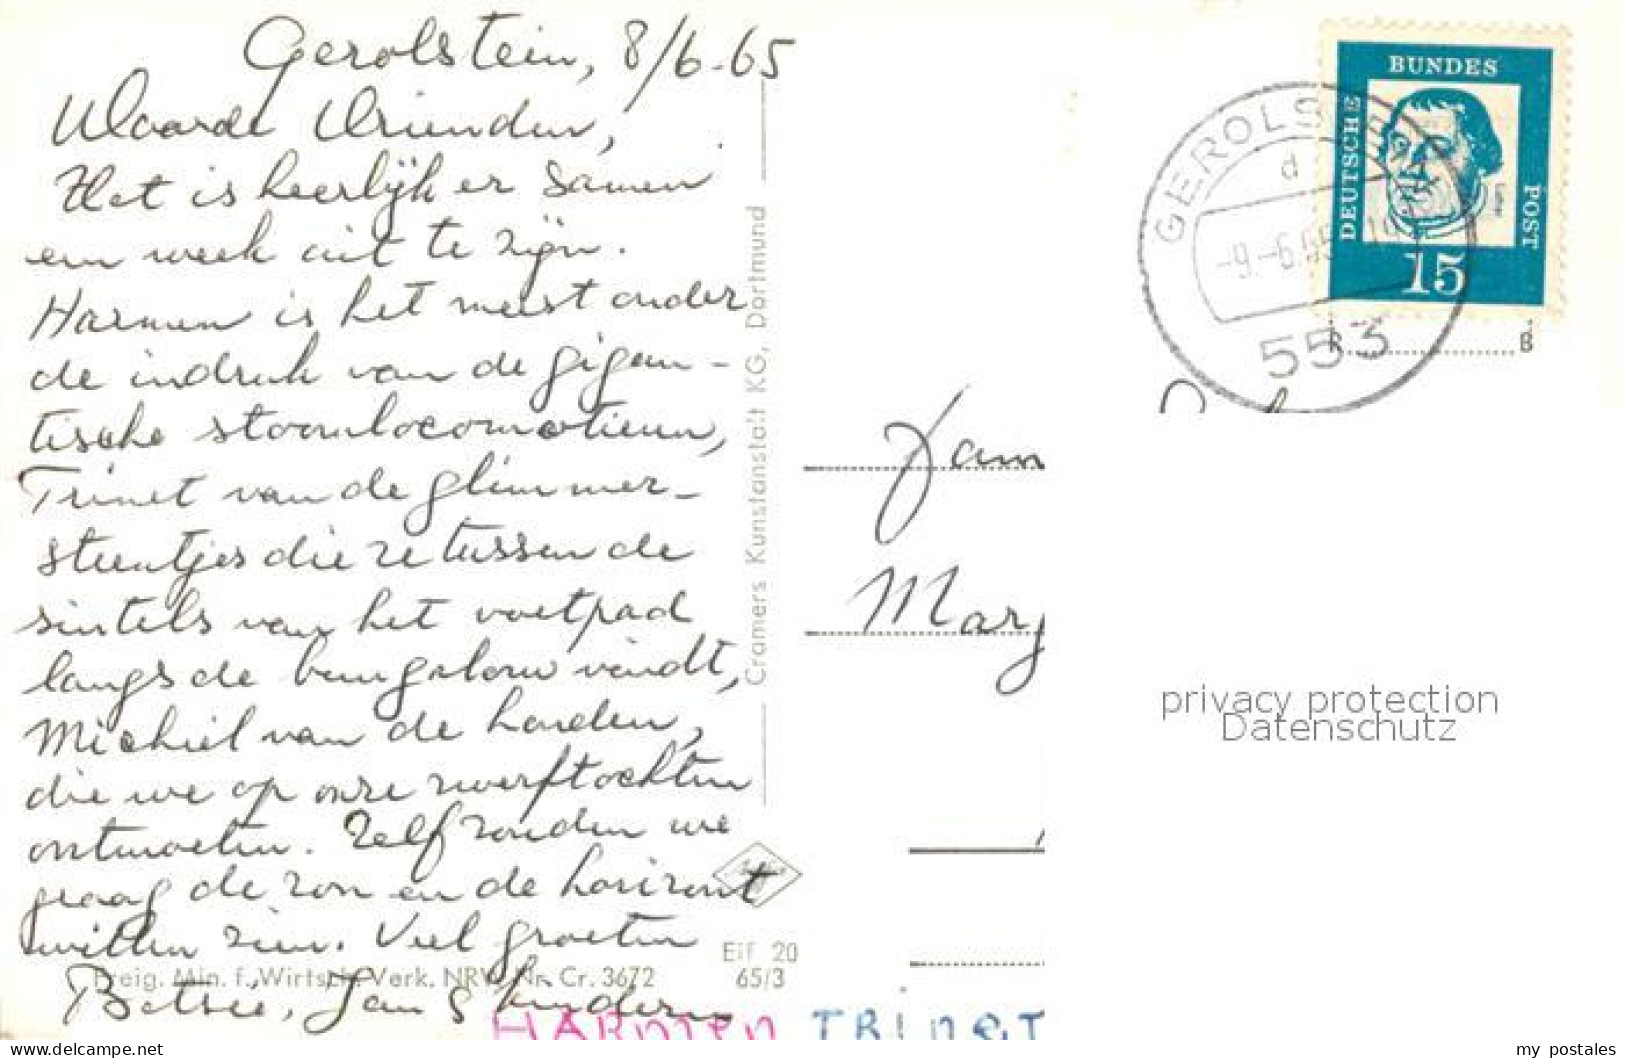 Gerolstein, 8/6-65
Waarde Vrienden,
Het is heerlijk er samen
een week uit te zijn.
Harmen is het meest onder
de indruk van de gigan-
tische stoomlocomotieven,
Trinet van de glimmer-
steentjes die ze tussen de
sintels van het voetpad
langs de bungalow vindt,
Michiel van de honden,
die we op onze zwerftochten
ontmoeten. Zelf zouden we
graag de zon en de horizont
willen zien. Veel groeten
Betsie, Jan & kinderen
HARMEN TRINET
Cramers Kunstanstalt KG, Dortmund
Freig. Min. f. Wirtsch. Verk. NRW, Nr. Cr. 3672
Eif 20
65/3
DEUTSCHE
BUNDES
POST
15
GEROLS
d
-9.-6.65
553
B
Jam
Marg
privacy protection
Datenschutz
https://www.delcampe.net
my_postales